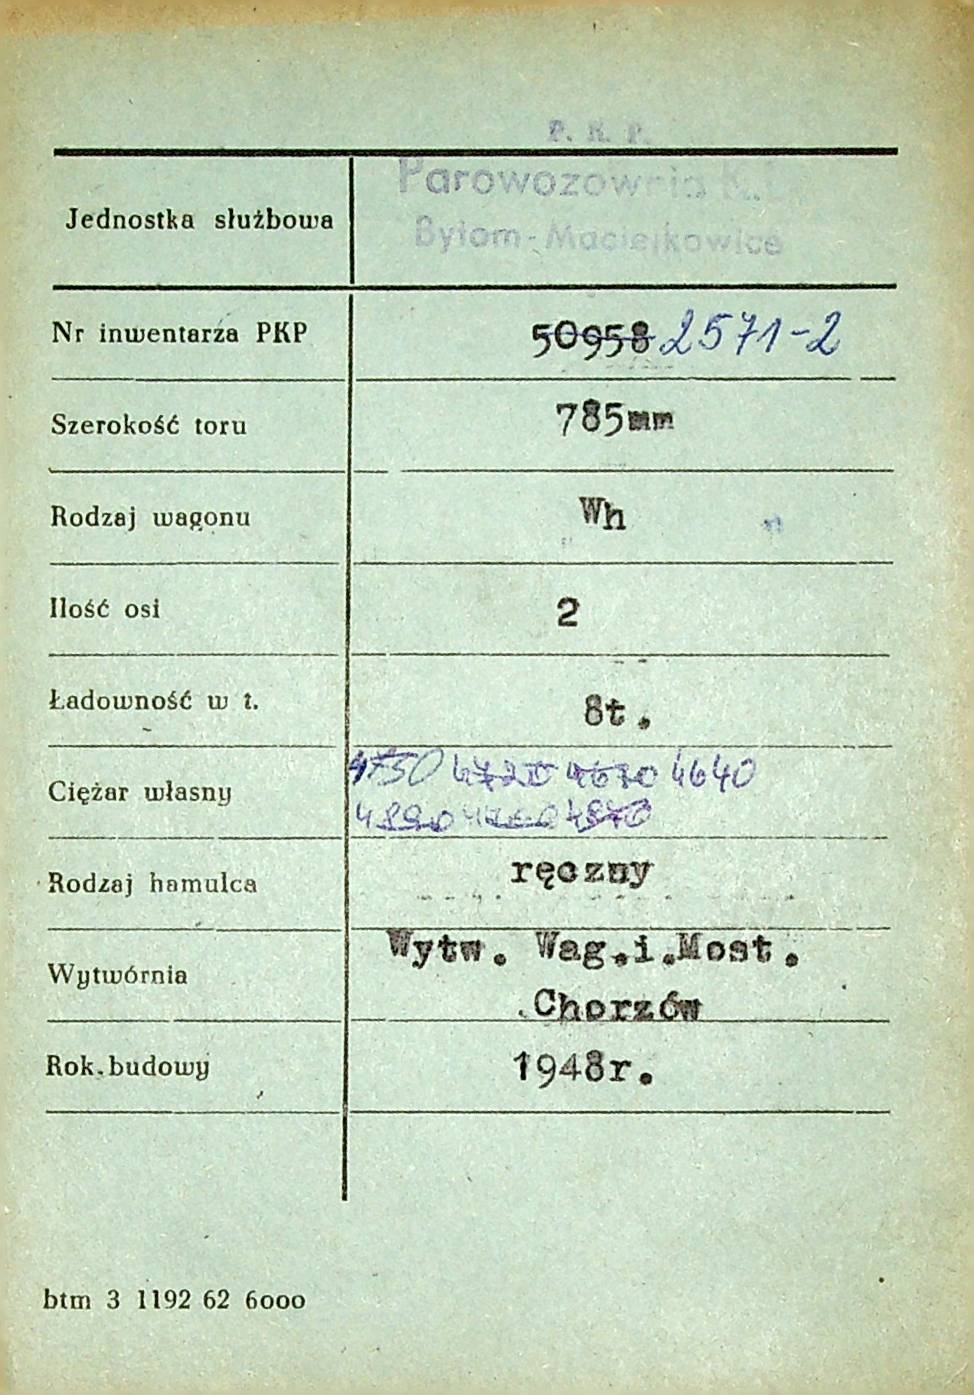 P. K. P.
Parowozownia K.D.
Bytom-Maciejkowice
Jednostka służbowa
Nr inwentarza PKP 50958 2571-2
Szerokość toru 785mm
Rodzaj wagonu Wh
Ilość osi 2
Ładowność w t. 8t.
4750 4720 4670 4640
Ciężar własny
Rodzaj hamulca ręczny
Wytw. Wag.i.Most.
Wytwórnia
Chorzów
Rok budowy 1948r.
btm 3 1192 62 6000